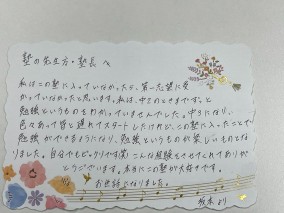 塾の先生方・塾長へ
私はこの塾に入っていなかったら、第一志望に受
かっていなかったと思います。私は、中2のときまでずっと
勉強というものをわかっていませんでした。中3になり、
色々あって皆と遅れてスタートしたけれど、この塾に入ったことで
勉強ができるようになり、勉強というものが楽しいものとな
りました。自分でもビックリです(笑)こんな経験をさせてくれてありが
とうございます。本当にこの塾が大好きです。
お世話になりました。
より